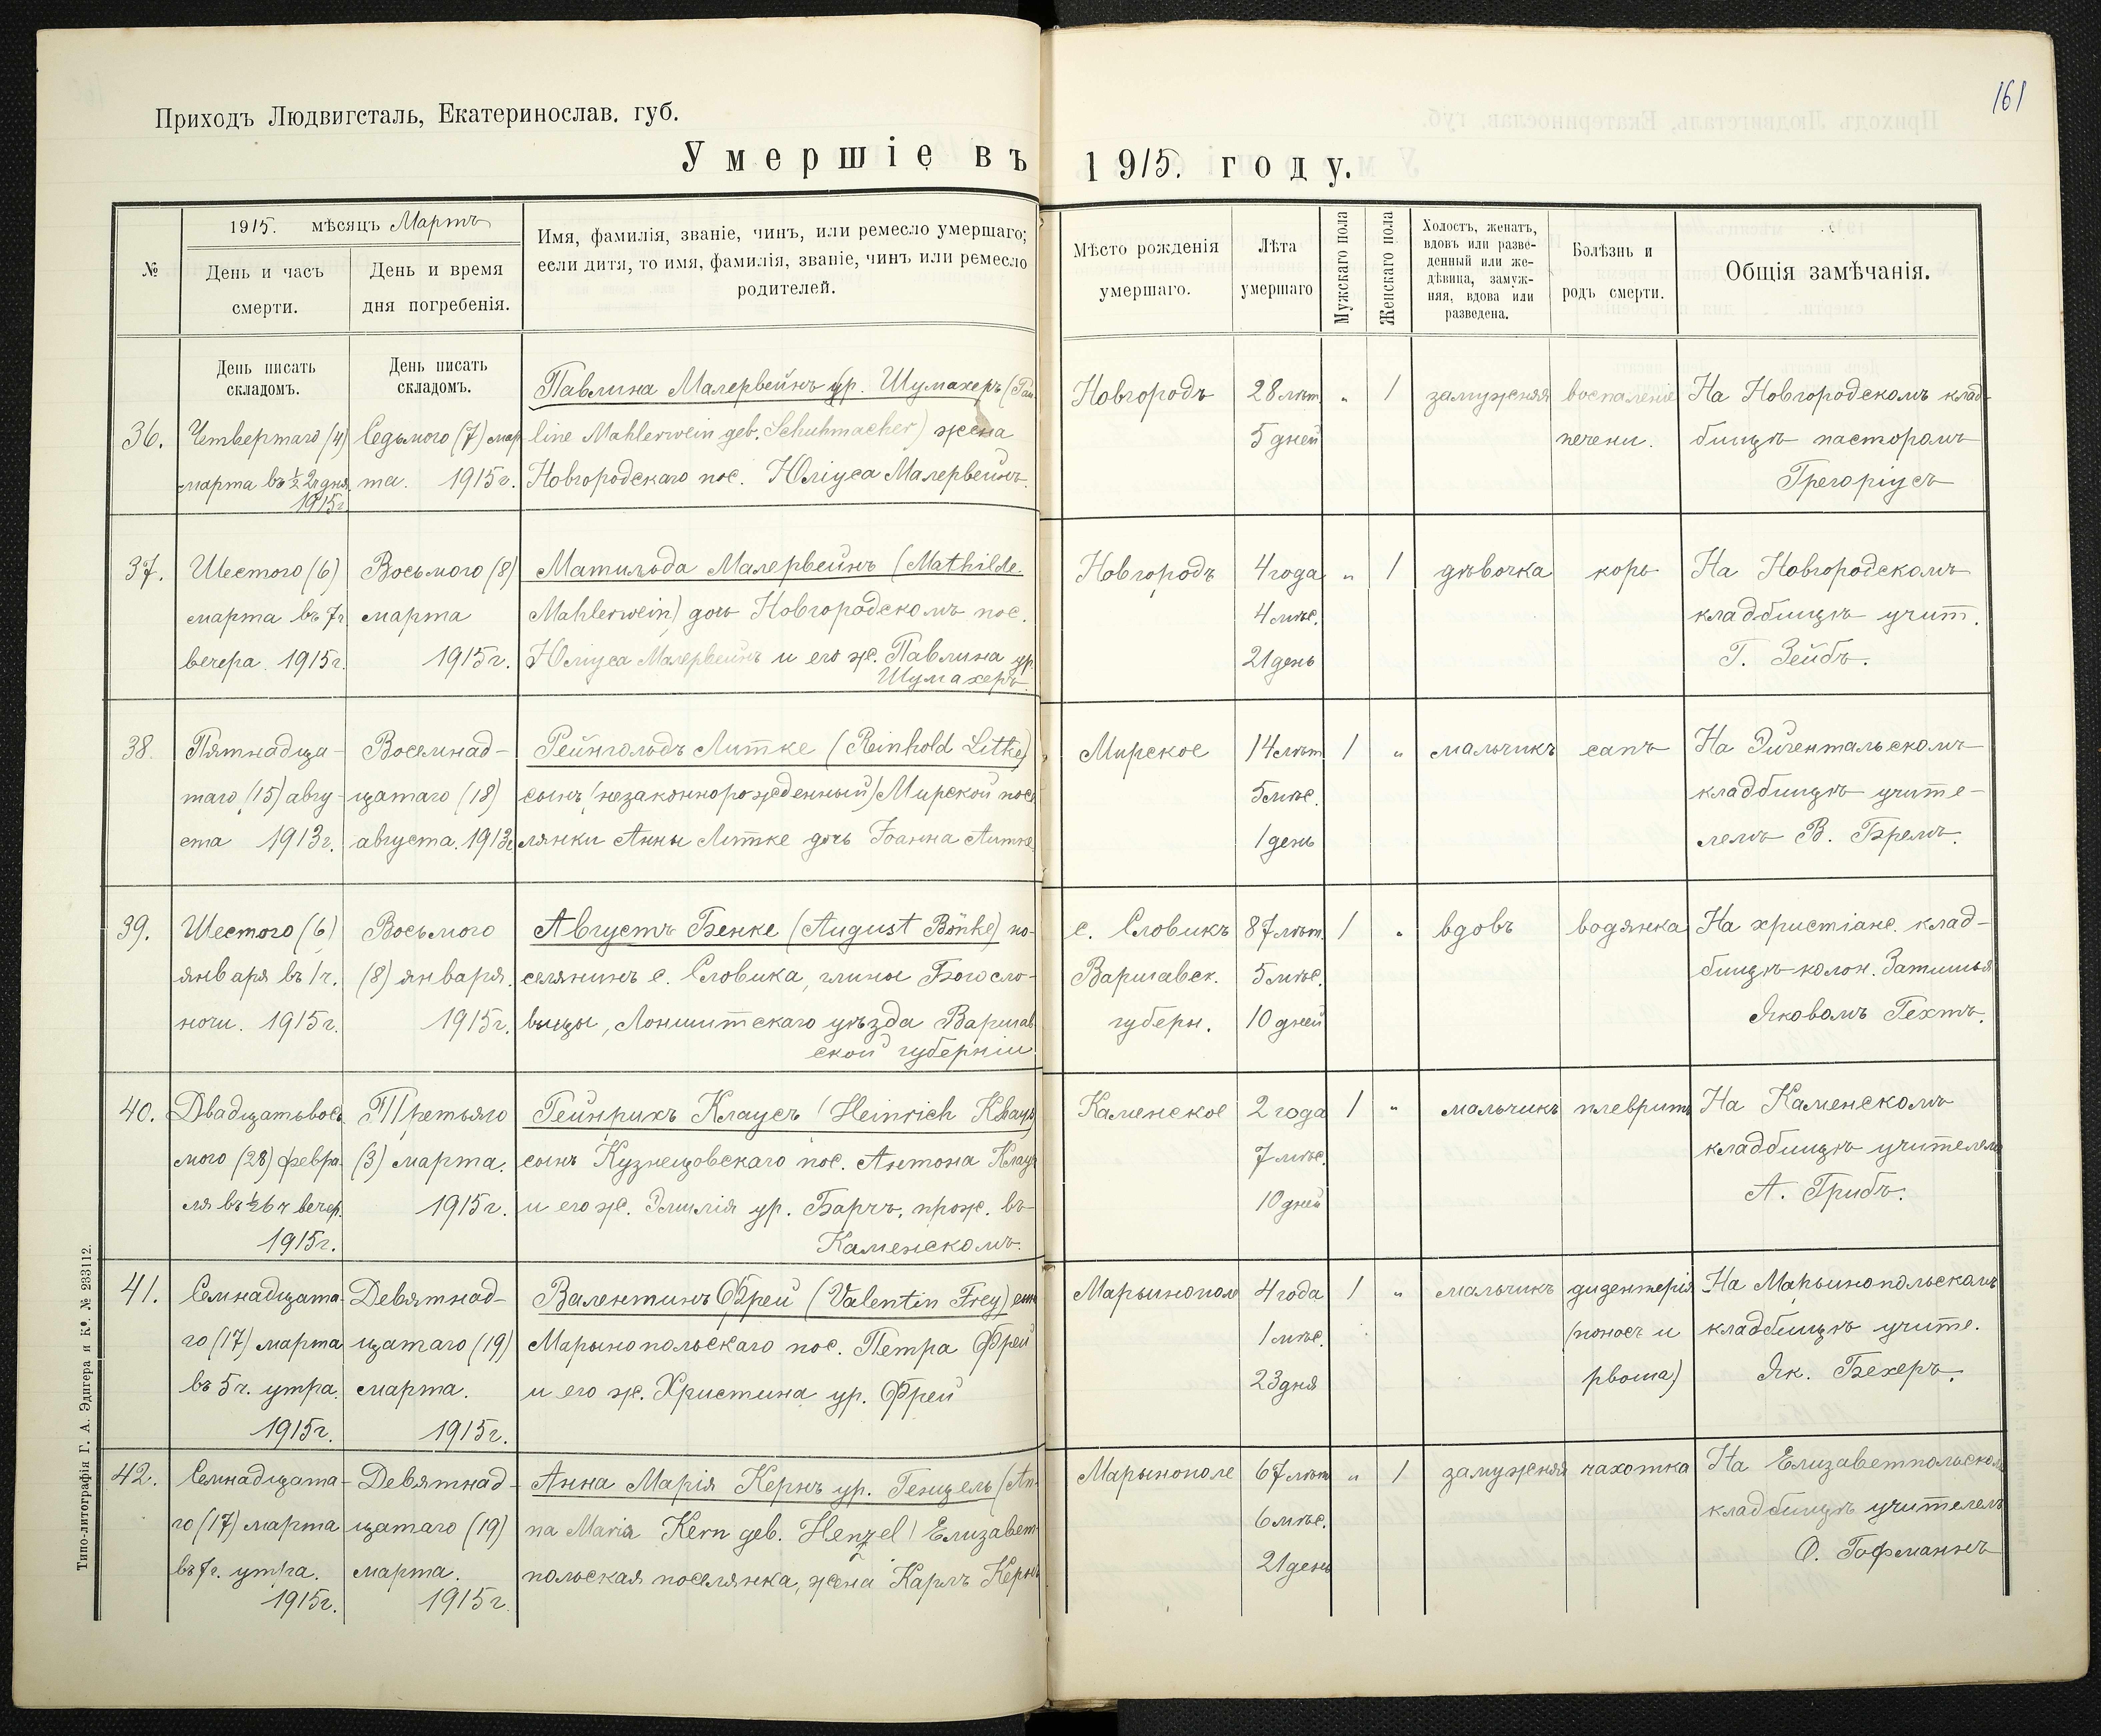 161
Приходъ Людвигсталь, Екатеринослав. губ.
Умершіе въ 1915. году.
№
1915. мѣсяцъ Мартъ
День и часъ смерти.
День и время дня погребенія.
Имя, фамилія, званіе, чинъ, или ремесло умершаго;
если дитя, то имя, фамилія, званіе, чинъ или ремесло
родителей.
Мѣсто рожденія
умершаго.
Лѣта
умершаго
Мужскаго пола
Женскаго пола
Холостъ, женатъ,
вдовъ или разве-
денный или же-
дѣвица, замуж-
няя, вдова или
разведена.
Болѣзнь и
родъ смерти.
Общія замѣчанія.
День писать
складомъ.
День писать
складомъ.
36.
Четвертаго (4)
марта въ ½ 2 г дня.
1915г.
Седьмого (7) мар
та. 1915г.
Павлина Малервейнъ ур. Шумахеръ (Pau
line Mahlerwein geb. Schuhmacher) жена
Новгородскаго пос. Юліуса Малервейнъ.
Новгородъ
28 лѣт.
5 дней
„
1
замужняя
воспаленіе
печени.
На Новгородскомъ клад-
бищѣ пасторомъ
Грегоріусъ
37.
Шестого (6)
марта въ 7ч.
вечера. 1915г.
Восьмого (8)
марта
1915г.
Матильда Малервейнъ (Mathilde
Mahlerwein) дочь Новгородскомъ пос.
Юліуса Малервейнъ и его ж. Павлина ур.
Шумахеръ
Новгородъ
4 года
4 мѣс.
21 день
„
1
дѣвочка
корь
На Новгородскомъ
кладбищѣ учит.
Г. Зейбъ.
38.
Пятнадца-
таго (15) авгу-
ста 1913г.
Восемнад-
цатаго (18)
августа. 1913г
Рейнгольдъ Литке (Reinhold Litke)
сынъ (незаконнорожденный) Мирской посе
лянки Анны Литке дочь Іоанна Литке
Мирское
14 лѣт
5 мѣс.
1 день
1
„
мальчикъ
сапъ
На Эйгентальскомъ
кладбищѣ учите-
лемъ В. Бремъ.
39.
Шестого (6)
января въ 1ч.
ночи. 1915г.
Восьмого
(8) января.
1915г.
Августъ Бенке (August Bönke) по-
селянинъ с. Словика, глины Богосло-
вицы, Лоншитскаго уѣзда Варшав
ской губерніи
с. Словикъ
Варшавск.
губерн.
87 лѣт.
5 мѣс.
10 дней
1
„
вдовъ
водянка
На христіанс. клад-
бищѣ колон. Затишья
Яковомъ Гехтъ.
40.
Двадцатьвось
мого (28) февра-
ля въ ½ 6 ч вечер.
1915г.
Третьяго
(3) марта.
1915г.
Гейнрихъ Клаусъ (Heinrich Klaus)
сынъ Кузнецовскаго пос. Антона Клаус
и его ж. Эмилія ур. Барчъ, прож. въ
Каменскомъ.
Каменское
2 года
7 мѣс.
10 дней
1
„
мальчикъ
плевритъ
На Каменскомъ
кладбищѣ учителемъ
А. Грибъ.
41.
Семнадцата-
го (17) марта
въ 5 ч. утра.
1915г.
Девятнад-
цатаго (19)
марта.
1915г.
Валентинъ Фрей (Valentin Frey) сынъ
Марынопольскаго пос. Петра Фрей
и его ж. Христина ур. Фрей
Марынополе
4 года
1 мѣс.
23 дня
1
„
мальчикъ
дидентерія
(поносъ и
рвота)
На Марынопольскомъ
кладбищѣ учите.
Як. Бехеръ.
42.
Семнадцата-
го (17) марта
въ 7ч. утра.
1915г.
Девятнад-
цатаго (19)
марта.
1915г.
Анна Марія Кернъ ур. Генцель (An-
na Maria Kern geb. Henzel) Елизавет-
польская поселянка, жена Карлъ Кернъ
Марынополе
67 лѣт
6 мѣс.
21 день
„
1
замужняя
чахотка
На Елизаветпольском
кладбищѣ учителемъ
О. Гофманнъ
Типо-литографія Г. А. Эдигера и Ко. № 233112.